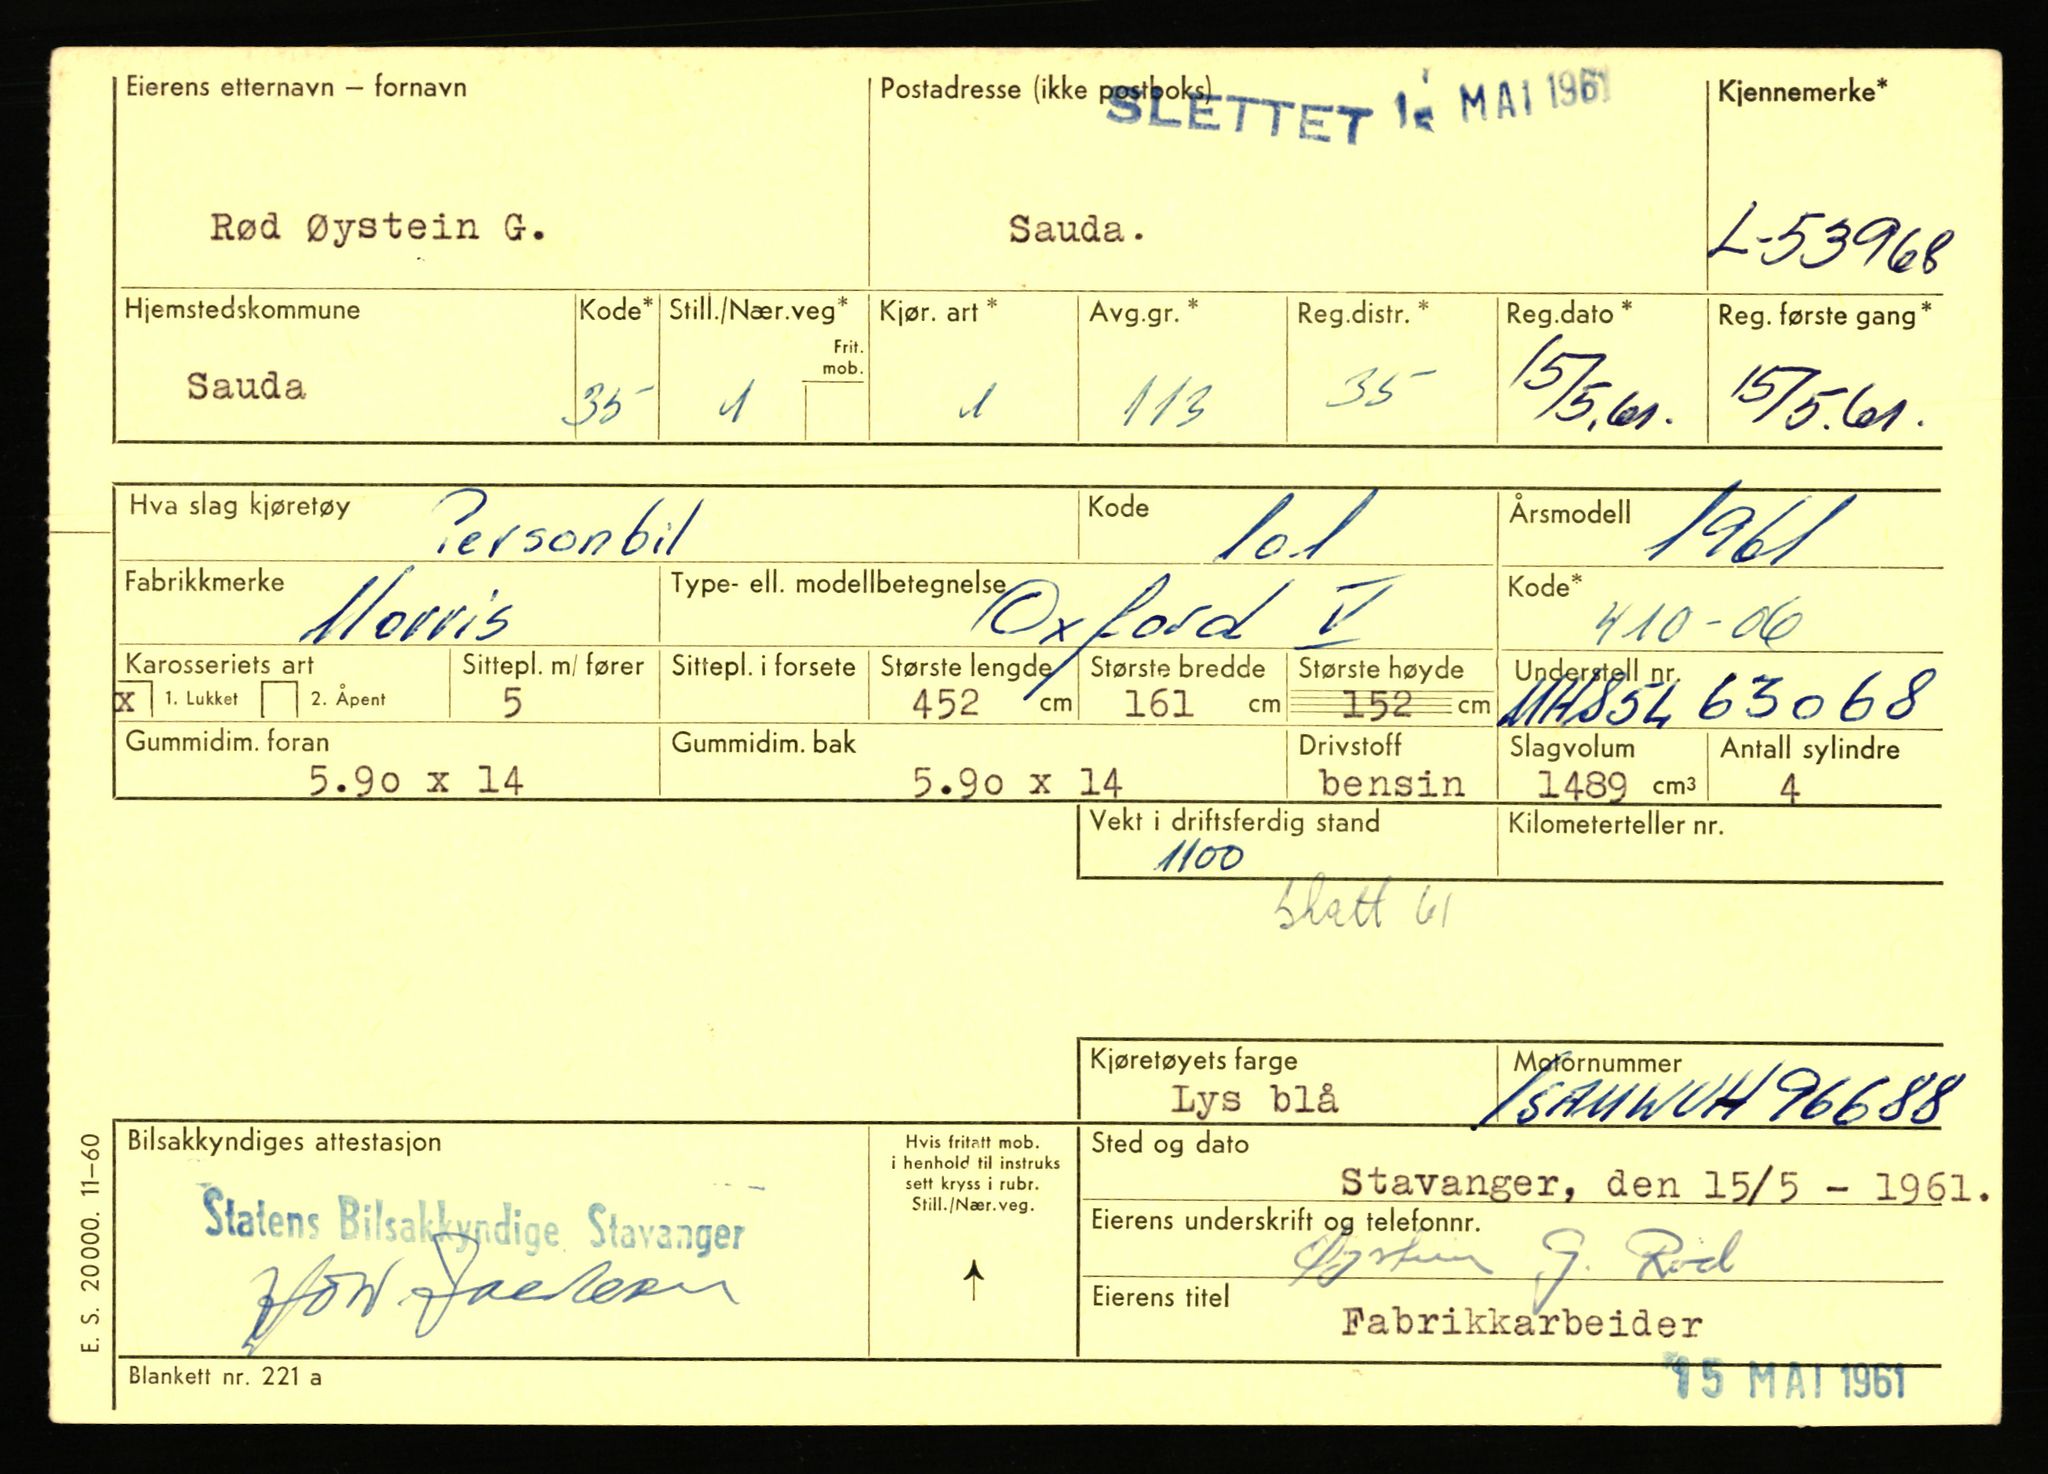 Eierens etternavn – fornavn
Postadresse (ikke postboks)
SLETTET MAI 1961
Kjennemerke*
Rød Øystein G.
Sauda.
L-53968
Hjemstedskommune
Kode*
Still./Nær.veg*
Kjør. art*
Avg.gr.*
Reg.distr.*
Reg.dato*
Reg. første gang*
Frit.
mob.
Sauda
35
1
1
113
35
15/5.61.
15/5.61.
Hva slag kjøretøy
Personbil
Kode
101
Årsmodell
1961
Fabrikkmerke
Morris
Type- ell. modellbetegnelse
Oxford V
Kode*
410-06
Karosseriets art
Sittepl. m/ fører
Sittepl. i forsete
Største lengde
Største bredde
Største høyde
Understell nr.
x 1. Lukket
2. Åpent
5
452 cm
161 cm
152 cm
MHS5L 63068
Gummidim. foran
Gummidim. bak
Drivstoff
Slagvolum
Antall sylindre
5.90 x 14
5.90 x 14
bensin
1489 cm3
4
Vekt i driftsferdig stand
Kilometerteller nr.
1100
Skatt 61
Kjøretøyets farge
Motornummer
Lys blå
15AMWUH96688
Bilsakkyndiges attestasjon
Hvis fritatt mob.
i henhold til instruks
sett kryss i rubr.
Still./Nær.veg.
Sted og dato
Stavanger, den 15/5 - 1961.
Statens Bilsakkyndige Stavanger
Eierens underskrift og telefonnr.
Øystein G. Rød
Eierens titel
Fabrikkarbeider
E. S. 20000. 11-60
Blankett nr. 221 a
15 MAI 1961